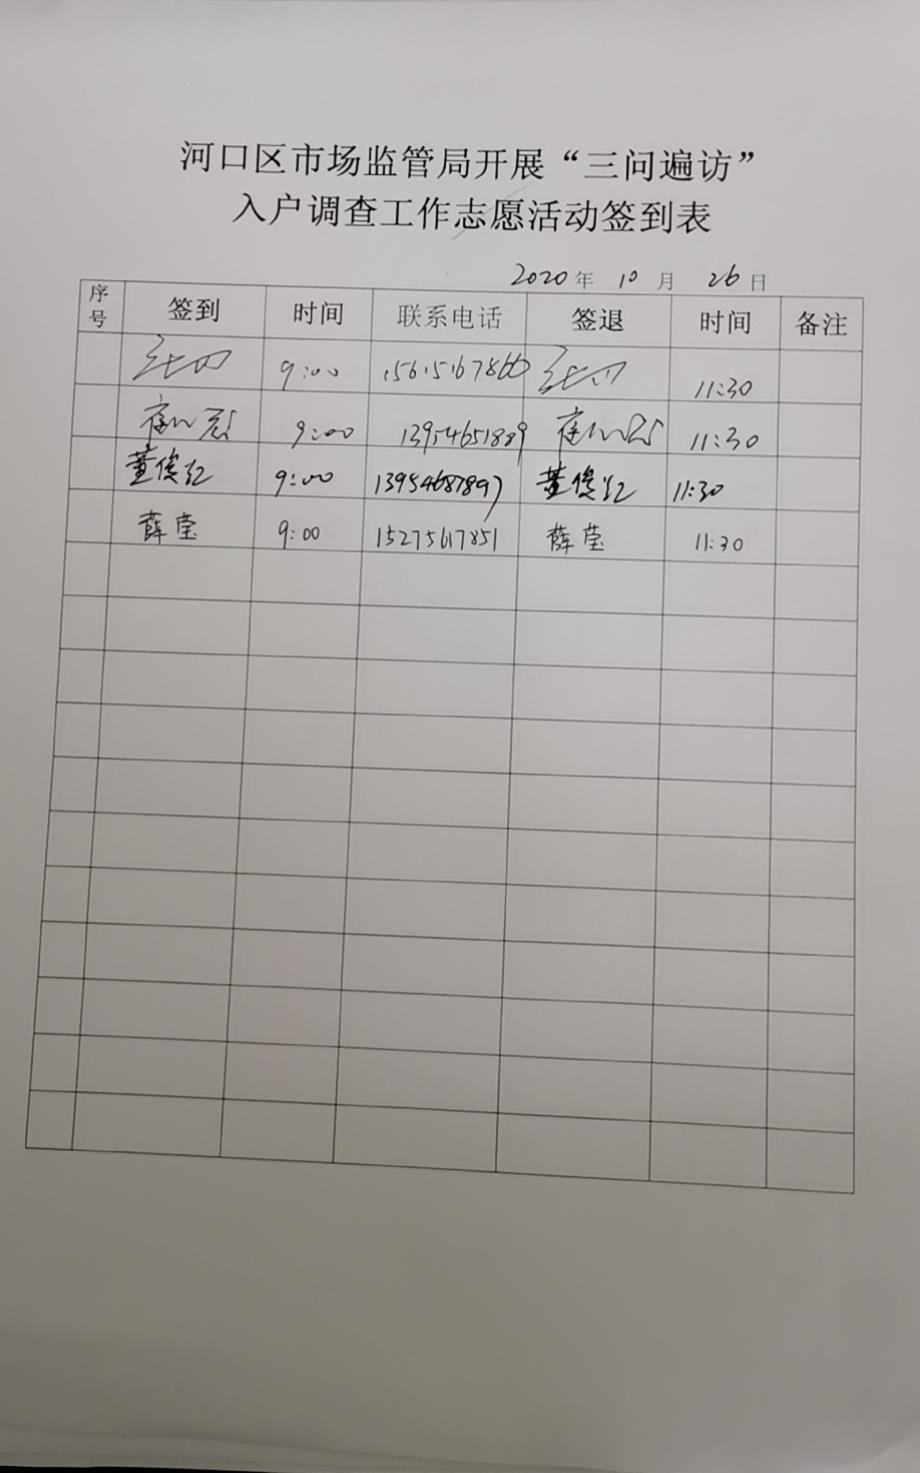 河口区市场监管局开展“三问遍访”
入户调查工作志愿活动签到表
2020年 10月 26日
序号 签到 时间 联系电话 签退 时间 备注
9:00 15615167866 11:30
9:00 13954651889 11:30
董俊红 9:00 13954687897 董俊红 11:30
薛莹 9:00 15275617851 薛莹 11:30